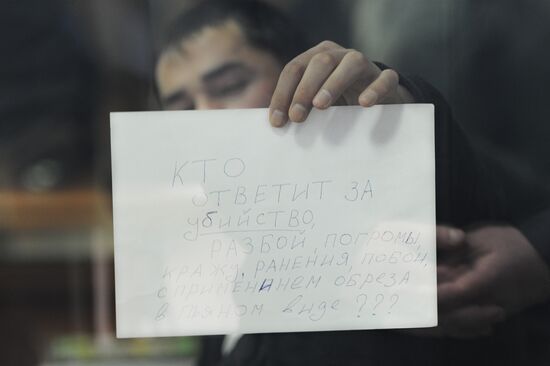 КТО
ОТВЕТИТ ЗА
УБИЙСТВО,
РАЗБОЙ, ПОГРОМЫ,
КРАЖУ, РАНЕНИЯ ПОБОИ,
С ПРИМЕНИНИЕМ ОБРЕЗА
В ПЬЯНОМ ВИДЕ ???